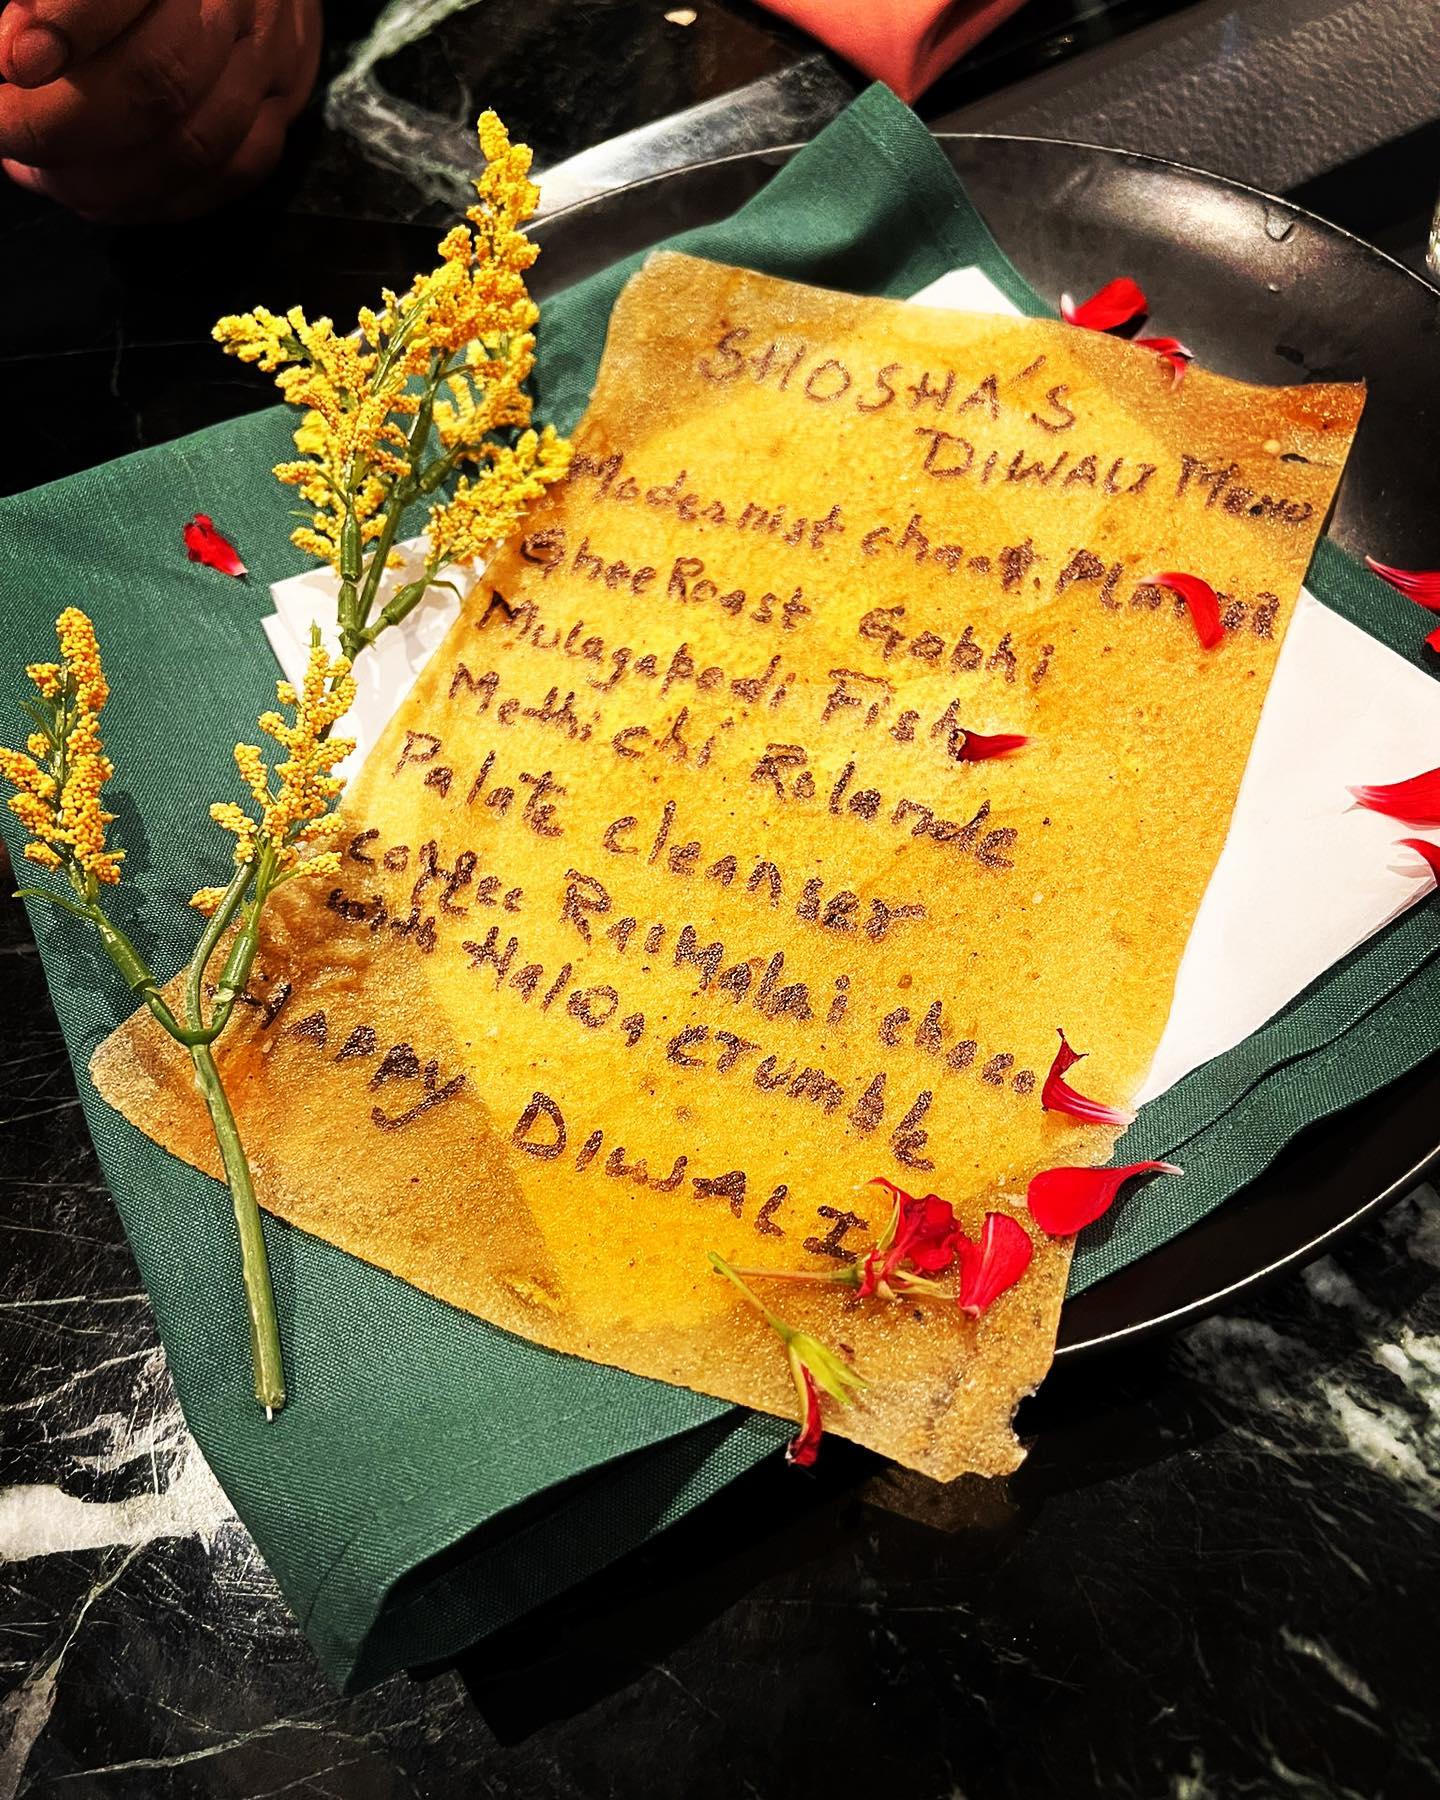 SHOSHA'S
DIWALI Menu
Modernist chaat. Platter
Ghee Roast Gobhi
Mulagapodi Fish
Methi chi Rolande
Palate cleanser
Coffee Rasmalai choco
with Halwa crumble
HAPPY DIWALI